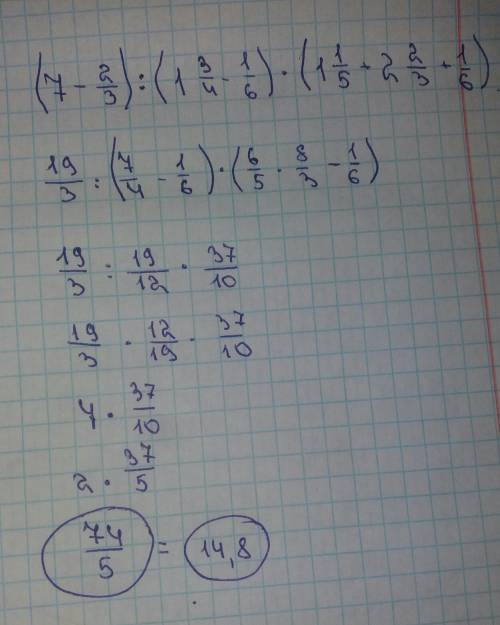 (7 - 2/3) : (1 3/4 - 1/6) · (1 1/5 + 2 2/3 + 1/6)
19/3 : (7/4 - 1/6) · (6/5 · 8/3 - 1/6)
19/3 : 19/12 · 37/10
19/3 · 12/19 · 37/10
4 · 37/10
2 · 37/5
74/5 = 14,8